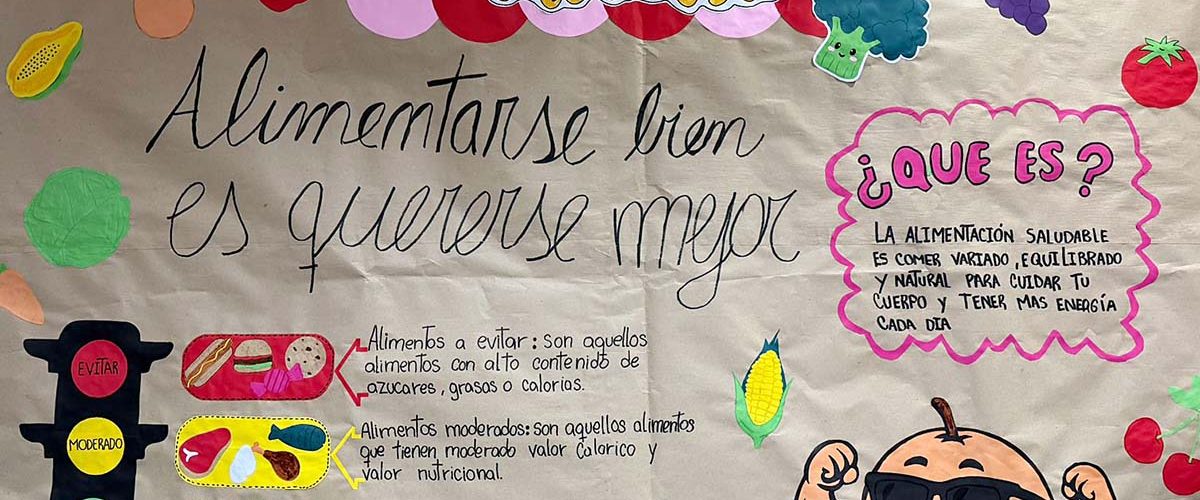 Alimentarse bien
es quererse mejor
¿QUE ES?
LA ALIMENTACIÓN SALUDABLE
ES COMER VARIADO, EQUILIBRADO
Y NATURAL PARA CUIDAR TU
CUERPO Y TENER MAS ENERGÍA
CADA DIA
EVITAR
Alimentos a evitar: son aquellos
alimentos con alto contenido de
azucares, grasas o calorias.
MODERADO
Alimentos moderados: son aquellos alimentos
que tienen moderado valor calorico y
valor nutricional.